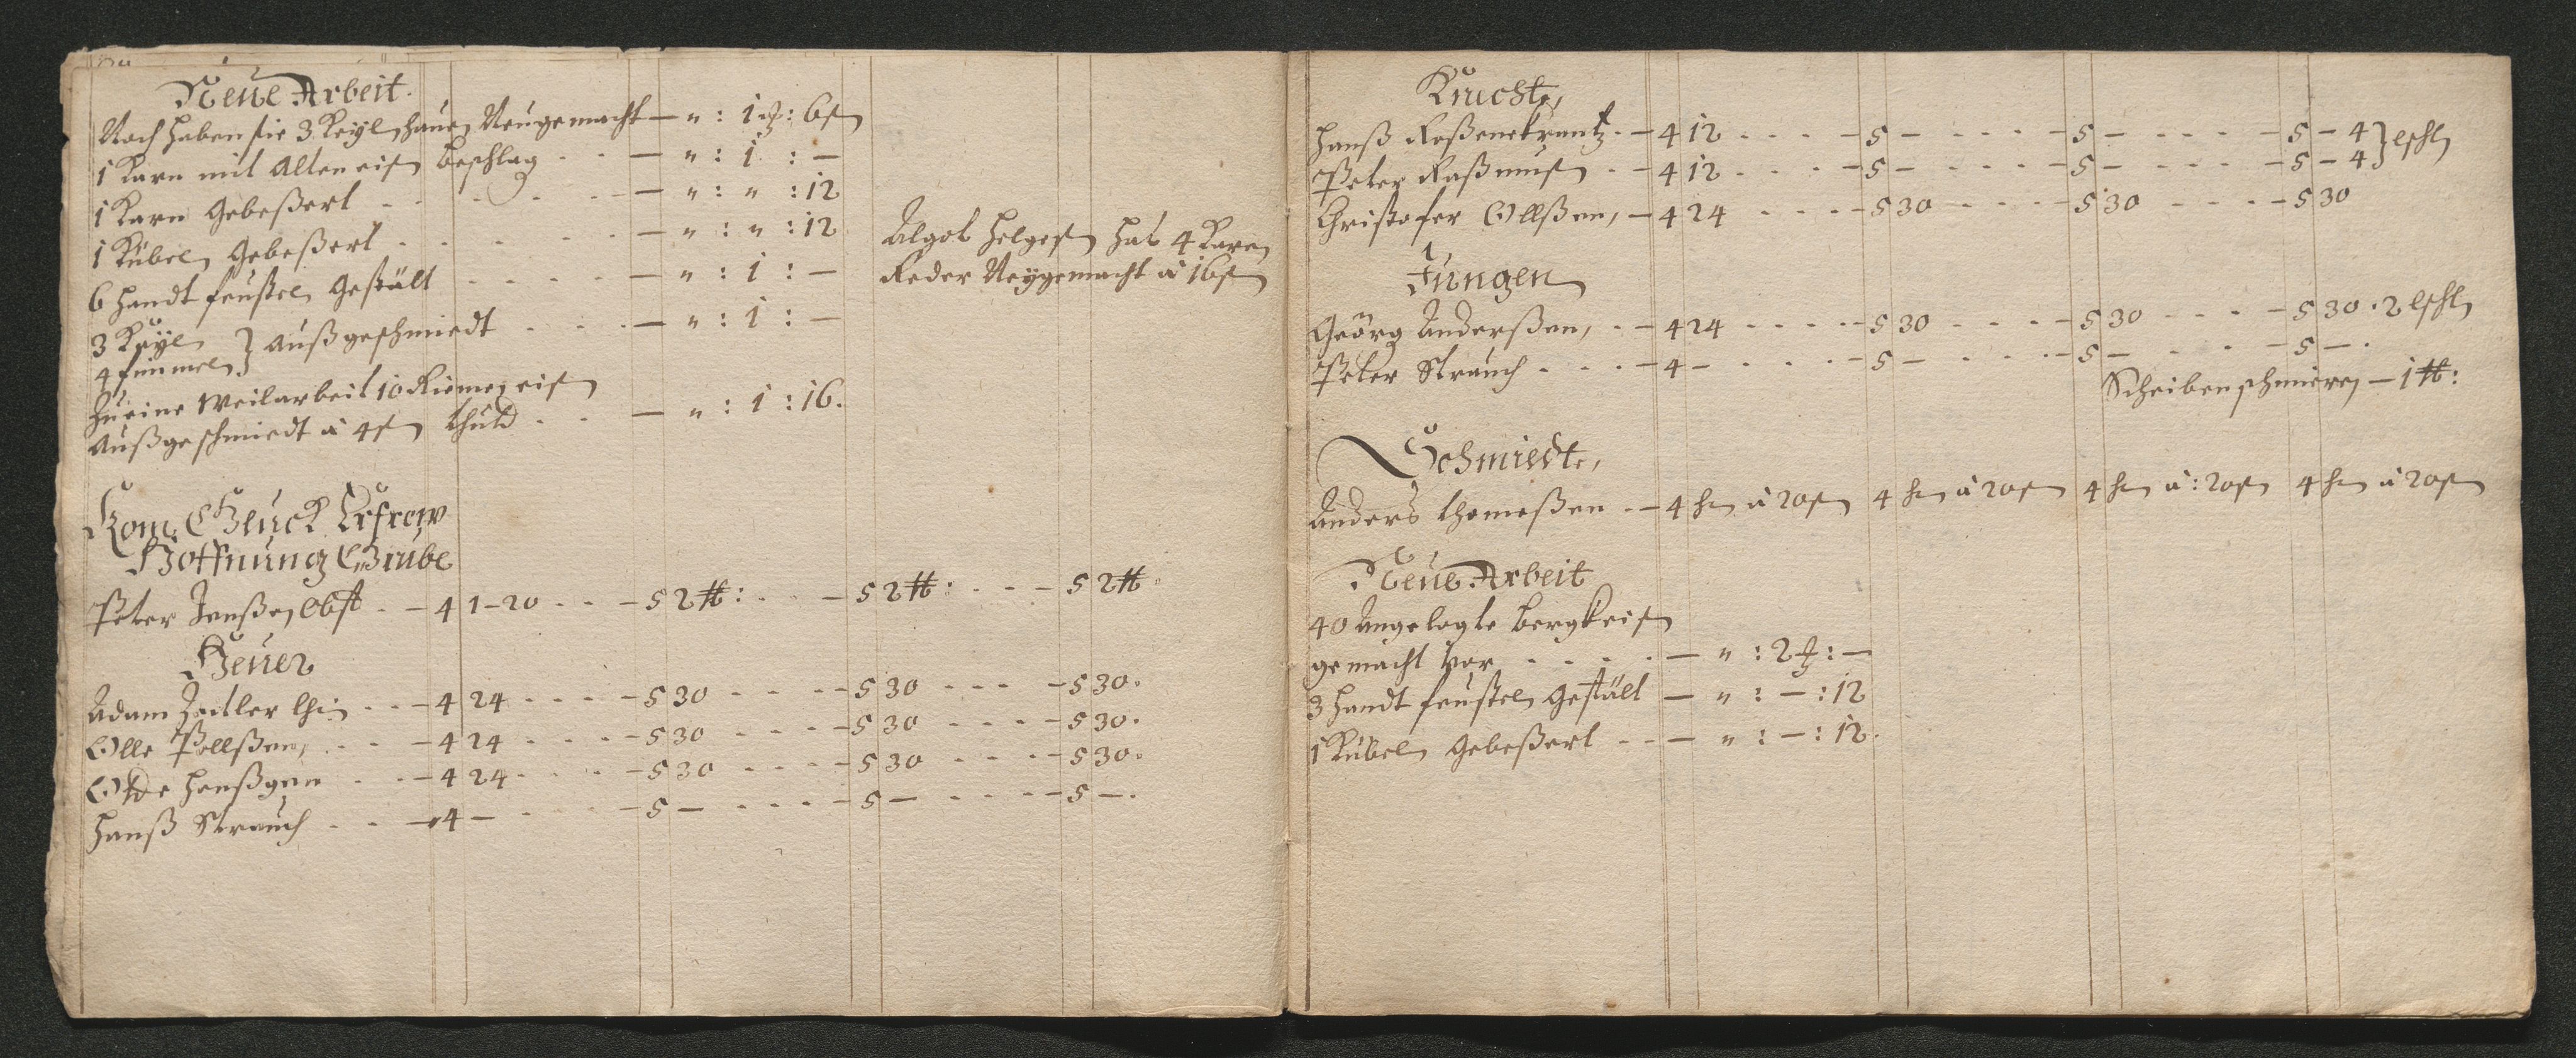 Neue Arbeit.
Noch haben sie 3 Keyl hauen Neugemacht — " : 1 : 6 s
1 Karn mit Alten eisen beschlag - - — " : 1 : —
1 Karn Gebeßert - - - - — " : " : 12
1 Kübel Gebeßert - - - - — " : " : 12
6 handt feustel Gestält - - - - — " : 1 : —
3 Keyl
4 fimmel } außgeschmiedt - - - — " : 1 : —
Zu eine Weilarbeit 10 Riemen eisen
Außgeschmiedt à 4 s thutd - - — " : 1 : 16.
Algot Helgesen hat 4 Karn
Reder Neygemacht à 16 s
Kom Glück Erfrew
Hoffnung Grube
Peter Jenßen Obst - - 4 1 - 20 - - - 5 2 ℔ : - - - 5 2 ℔ : - - - 5 2 ℔
Heuer
Adam Zeitler - - - 4 24 - - - - 5 30 - - - - 5 30 - - - - 5 30.
Olle Pellßen, - - - 4 24 - - - - 5 30 - - - - 5 30 - - - - 5 30.
Otte Hanßgen - - - 4 24 - - - - 5 30 - - - - 5 30 - - - - 5 30.
Hanß Strauch - - - 4 — - - - 5 — - - - - 5 — - - - - 5 —.
Knechte,
Hanß Roßenekrantz - - 4 12 - - - - 5 — - - - - 5 — - - - - 5 — 4 }
Peter Raßmusen - - 4 12 - - - - 5 — - - - - 5 — - - - - 5 — 4 }
Christofer Ollßen, - 4 24 - - - - 5 30 - - - - 5 30 - - - - 5 30
Jungen
Geörg Anderßen, - - 4 24 - - - - 5 30 - - - - 5 30 - - - - 5 30 . 2
Peter Strauch - - - 4 — - - - - 5 — - - - - 5 — - - - 5 — .
Scheiben schmieren — 1 ℔ :
Schmiedte,
Anders thomeßen - - 4 h à 20 s 4 h à 20 s 4 h à : 20 s 4 h à 20 s
Neue Arbeit
40 Angelegte bergkeisen
gemacht vor - - - - — " : 2 : —
3 handt feustel Gestält — " : — : 12
1 Kübel Gebeßert - - — " : — : 12.